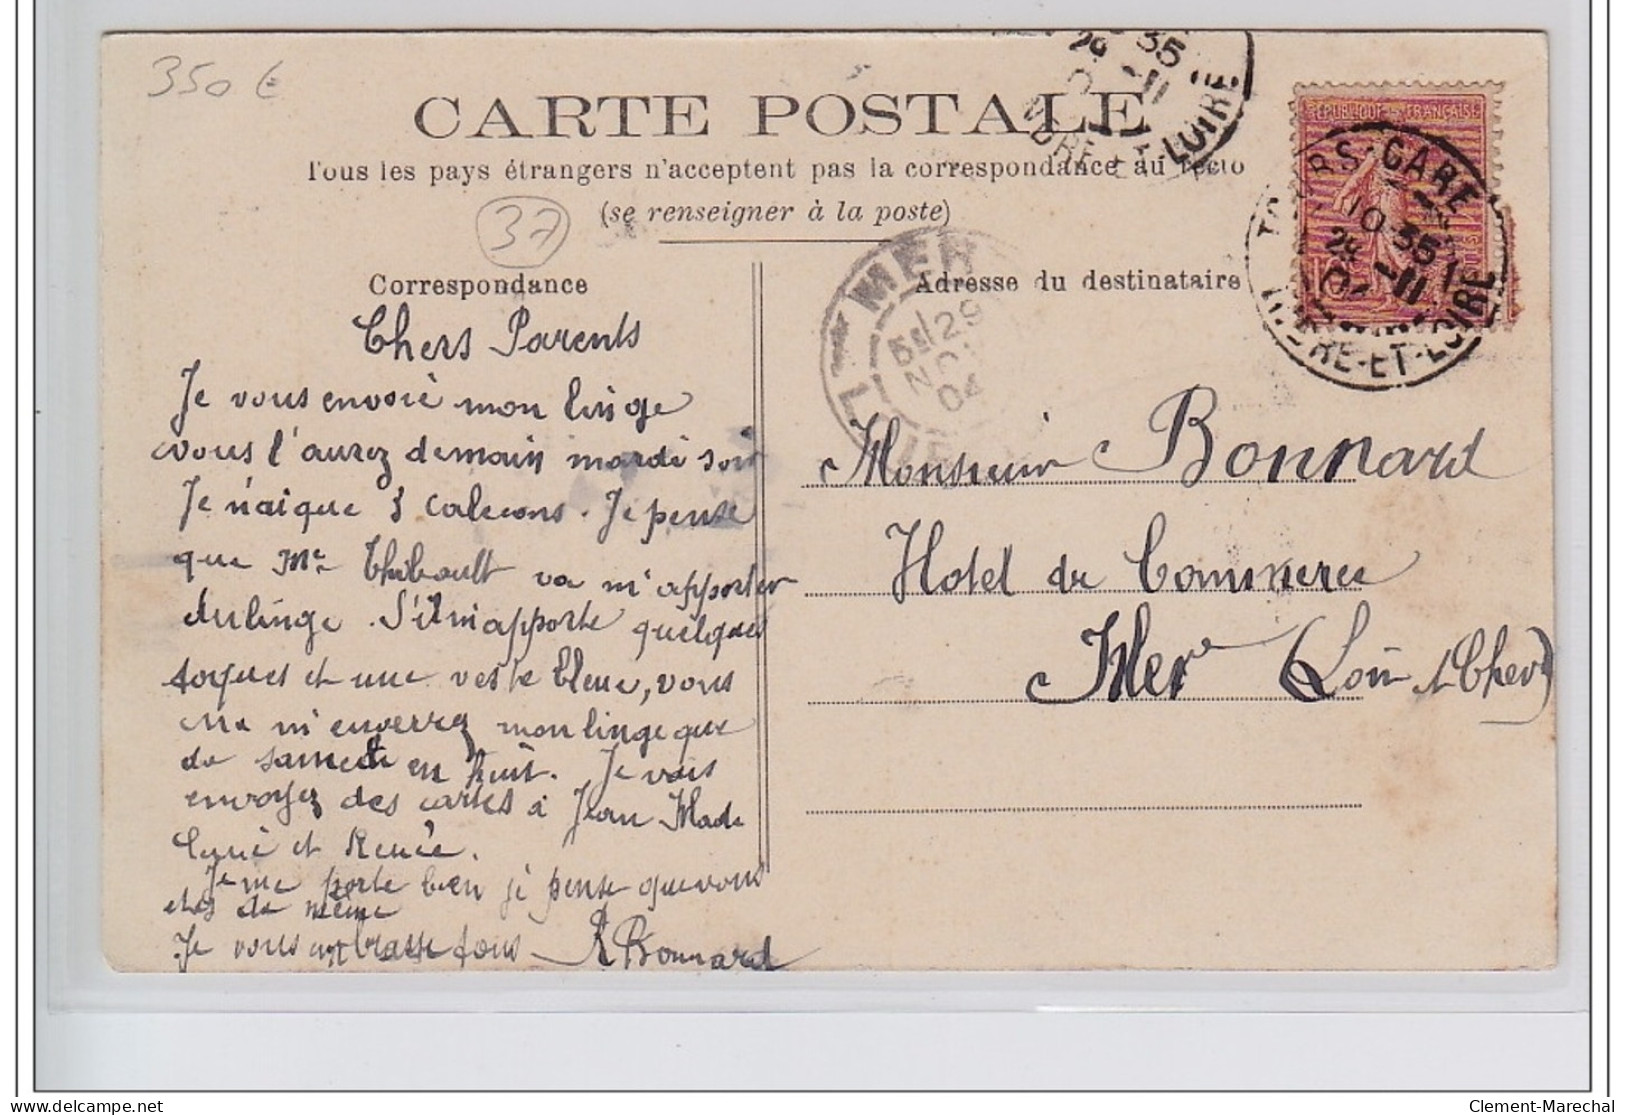 350 €
CARTE POSTALE
Tous les pays étrangers n'acceptent pas la correspondance au recto
(se renseigner à la poste)
37
Correspondance
Chers Parents
Je vous envoie mon linge
vous l'aurez demain mardi soir
Je n'ai que 3 caleçons. Je pense
que Mr Thibault va m'apporter
du linge. S'il m'apporte quelques
toques et une veste bleue, vous
ne m'enverrez mon linge que
de samedi en huit. Je vais
envoyez des cartes à Jean Made
et Renée.
Je me porte bien je pense que vous
etes de même
Je vous embrasse tous
R Bonnard
Adresse du destinataire
Monsieur Bonnard
Hotel du Commerce
Mer (Loir et Cher)
REPUBLIQUE FRANÇAISE
TOURS-GARE
10 35
INDRE-ET-LOIRE
35
29
INDRE-ET-LOIRE
MER
5E/29
04
Clement-Marechal